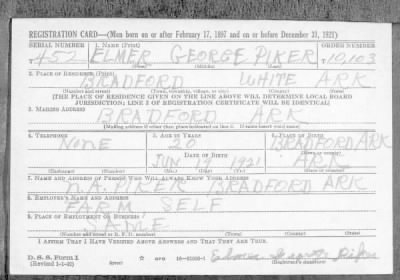 REGISTRATION CARD—(Men born on or after February 17, 1897 and on or before December 31, 1921)
SERIAL NUMBER 1. NAME (Print) ORDER NUMBER
452 ELMER GEORGE PIKER 10,103
2. PLACE OF RESIDENCE (Print)
BRADFORD WHITE ARK
(Number and street) (Town, township, village, or city) (County) (State)
[THE PLACE OF RESIDENCE GIVEN ON THE LINE ABOVE WILL DETERMINE LOCAL BOARD
JURISDICTION; LINE 2 OF REGISTRATION CERTIFICATE WILL BE IDENTICAL]
3. MAILING ADDRESS
BRADFORD ARK
[Mailing address if other than place indicated on line 2. If same insert word same]
4. TELEPHONE 5. AGE IN YEARS 6. PLACE OF BIRTH
NONE 20 BRADFORD ARK
DATE OF BIRTH
JUN 19 1921 ARK
(Exchange) (Number) (Mo.) (Day) (Yr.) (State or country)
7. NAME AND ADDRESS OF PERSON WHO WILL ALWAYS KNOW YOUR ADDRESS
A. PIKER BRADFORD ARK
8. EMPLOYER'S NAME AND ADDRESS
FARM, SELF
9. PLACE OF EMPLOYMENT OR BUSINESS
SAME
(Number and street or R. F. D. number) (Town) (County) (State)
I AFFIRM THAT I HAVE VERIFIED ABOVE ANSWERS AND THAT THEY ARE TRUE.
D. S. S. Form 1
(Revised 1-1-42) (over)
George Piker